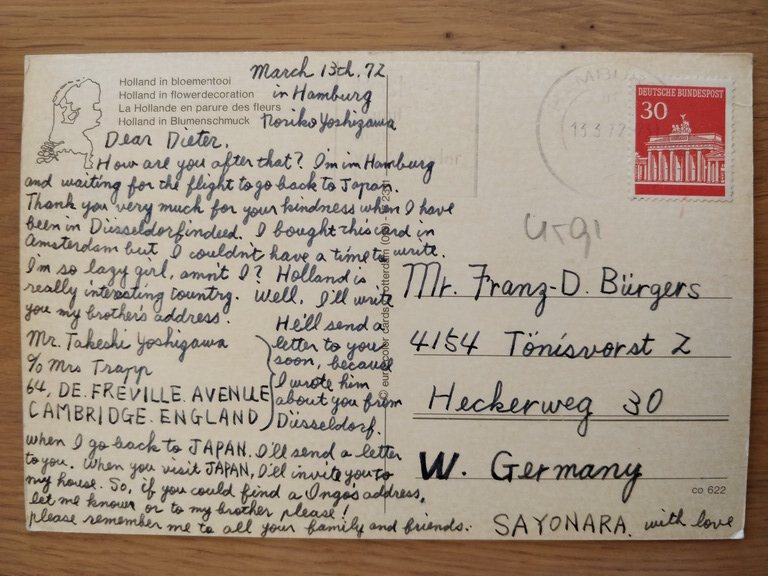 Holland in bloementooi
Holland in flowerdecoration
La Hollande en parure des fleurs
Holland in Blumenschmuck
March 13th. 72
in Hamburg
Noriko Yoshizawa
Dear Dieter,
How are you after that? I'm im Hamburg
and waiting for the flight to go back to Japan.
Thank you very much for your kindness when I have
been in Düsseldorf indeed. I bought this card in
Amsterdam but I couldn't have a time to write.
I'm so lazy girl, amn't I? Holland is
really interesting country. Well, I'll write
you my brother's address.
Mr. Takeshi Yoshizawa
c/o Mrs Trapp
64, DE. FREVILLE. AVENUE
CAMBRIDGE. ENGLAND
He'll send a
letter to you
soon, because
I wrote him
about you from
Düsseldorf.
when I go back to JAPAN. I'll send a letter
to you. When you visit JAPAN, I'll invite you to
my house. So, if you could find a Ingos address,
let me know or to my brother please!
please remember me to all your family and friends.
SAYONARA. with love
DEUTSCHE BUNDESPOST
30
13.3.72
Mr. Franz-D. Bürgers
4154 Tönisvorst 2
Heckerweg 30
W. Germany
co 622